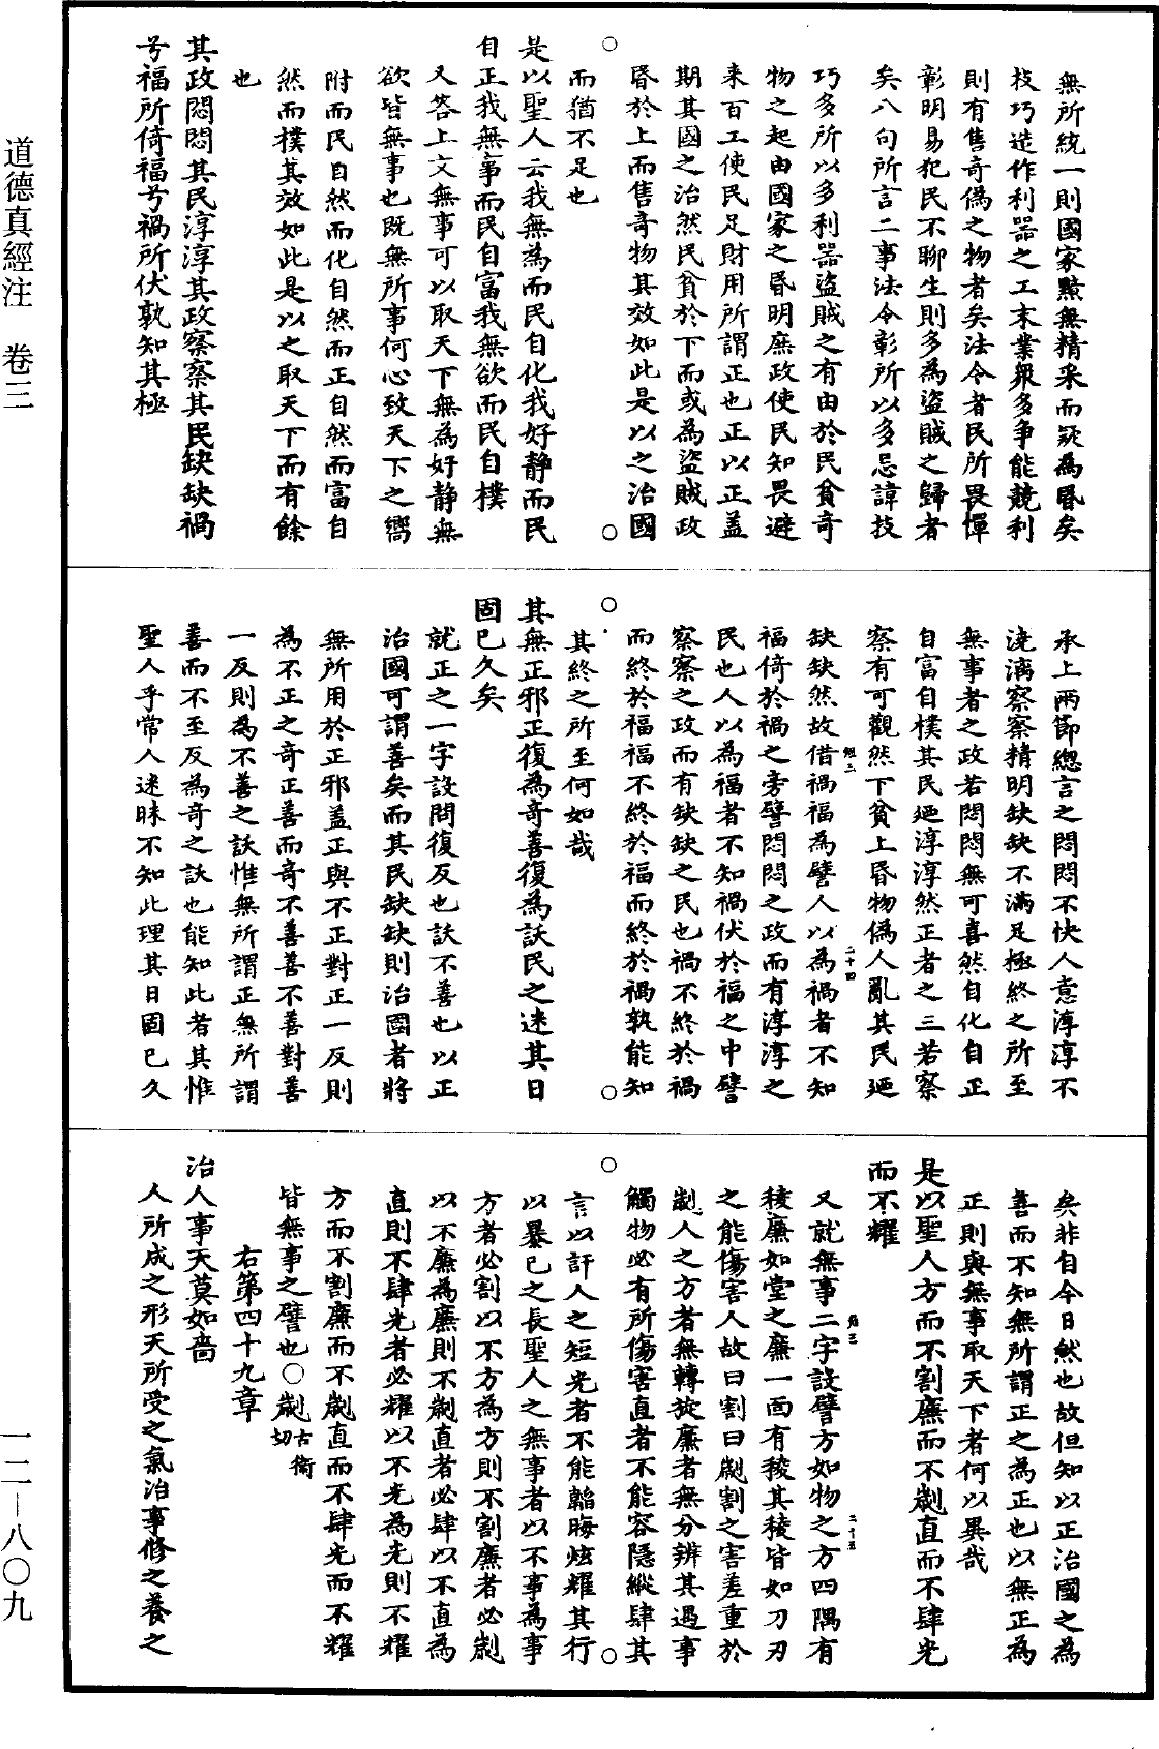 無所統一則國家黯無精采而疑為昬矣
技巧造作利器之工末業衆多争能競利
則有售奇僞之物者矣法令者民所畏憚
彰明易犯民不聊生則多為盜賊之歸者
矣八句所言二事法令彰所以多忌諱技
巧多所以多利器盜賊之有由於民貧奇
物之起由國家之昬明庶政使民知畏避
来百工使民足財用所謂正也正以正盖
期其國之治然民貧於下而或為盜賊政
昬於上而售奇物其效如此是以之治國
而猶不足也
是以聖人云我無為而民自化我好静而民
自正我無事而民自富我無欲而民自樸
又答上文無事可以取天下無為好静無
欲皆無事也既無所事何心致天下之嚮
附而民自然而化自然而正自然而富自
然而樸其效如此是以之取天下而有餘
也
其政悶悶其民淳淳其政察察其民缺缺禍
兮福所倚福兮禍所伏孰知其極
承上兩節緫言之悶悶不快人意淳淳不
澆漓察察精明缺缺不滿足極終之所至
無事者之政若悶悶無可喜然自化自正
自富自樸其民廼淳淳然正者之三若察
察有可觀然下貧上昬物僞人亂其民廼
缺缺然故借禍福為譬人以為禍者不知
福倚於禍之旁譬悶悶之政而有淳淳之
民也人以為福者不知禍伏於福之中譬
察察之政而有缺缺之民也禍不終於禍
而終於福福不終於福而終於禍孰能知
其終之所至何如哉
其無正邪正復為奇善復為訞民之迷其日
固已久矣
就正之一字設問復反也訞不善也以正
治國可謂善矣而其民缺缺則治國者將
無所用於正邪盖正與不正對正一反則
為不正之奇正善而奇不善善不善對善
一反則為不善之訞惟無所謂正無所謂
善而不至反為奇之訞也能知此者其惟
聖人乎常人迷昧不知此理其日固已久
矣非自今日然也故但知以正治國之為
善而不知無所謂正之為正也以無正為
正則與無事取天下者何以異哉
是以聖人方而不割廉而不劌直而不肆光
而不耀
又就無事二字設譬方如物之方四隅有
稜廉如堂之廉一面有稜其稜皆如刀刃
之能傷害人故曰割曰劌割之害差重於
劌人之方者無轉旋廉者無分辨其遇事
觸物必有所傷害直者不能容隱縱肆其
言以訐人之短光者不能韜晦炫耀其行
以暴已之長聖人之無事者以不事為事
方者必割以不方為方則不割廉者必劌
以不廉為廉則不劌直者必肆以不直為
直則不肆光者必耀以不光為光則不耀
方而不割廉而不劌直而不肆光而不耀
皆無事之譬也○劌古衛切
右第四十九章
治人事天莫如嗇
人所成之形天所受之氣治事修之養之
道德真經注 卷三
一二—八〇九